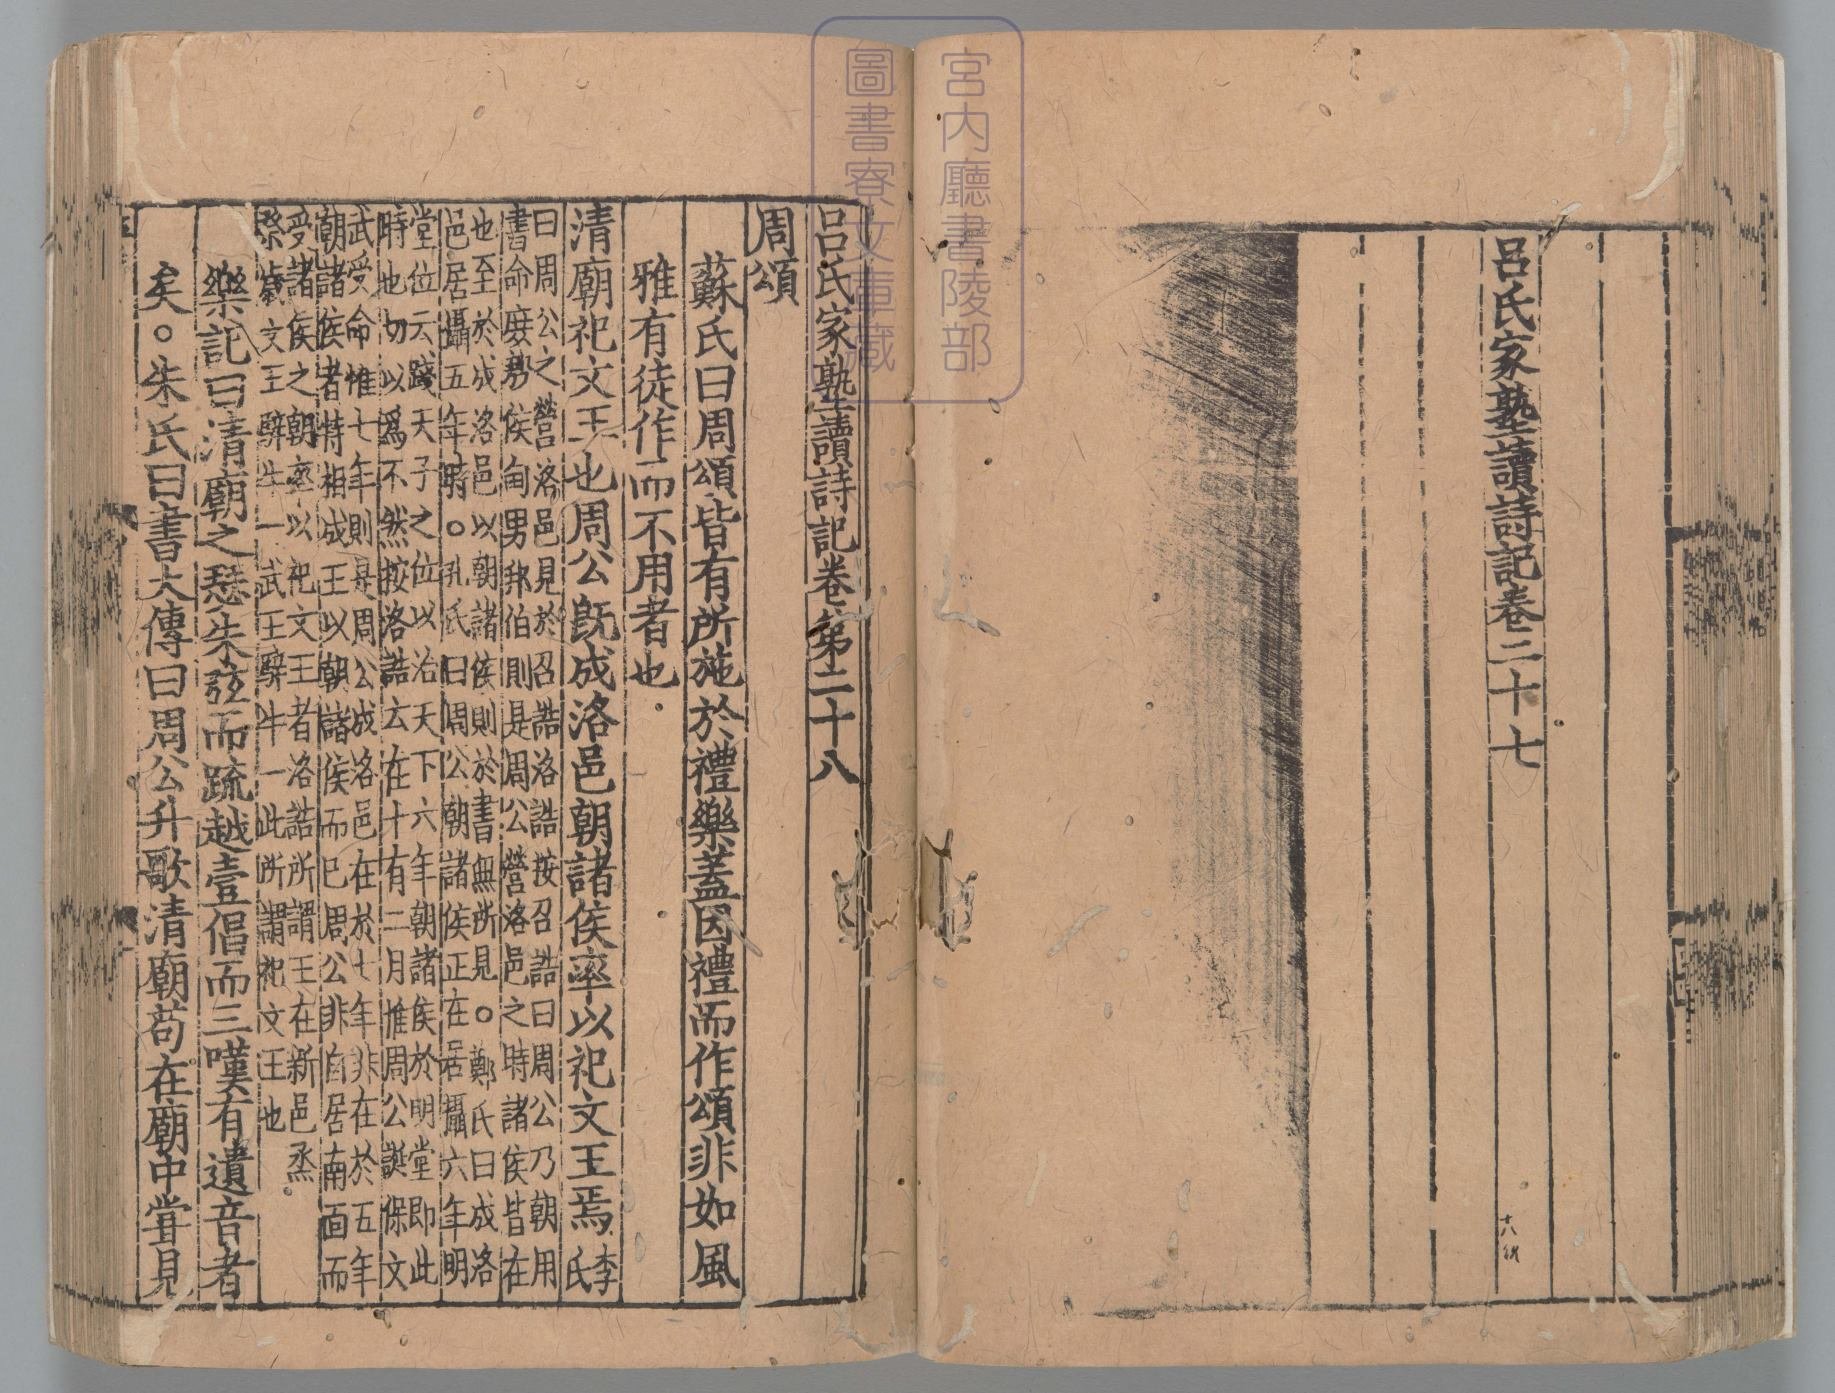 宮内廳書陵部
圖書寮文庫藏
呂氏家塾讀詩記卷二十七
呂氏家塾讀詩記卷第二十八
周頌
蘇氏曰周頌皆有所施於禮樂蓋因禮而作頌非如風
雅有徒作而不用者也
清廟祀文王也周公旣成洛邑朝諸侯率以祀文王焉李氏
曰周公之營洛邑見於召誥洛誥按召誥曰周公乃朝用
書命庶勢侯甸男邦伯則是周公營洛邑之時諸侯皆在
也至於成洛邑以朝諸侯則於書無所見○鄭氏曰成洛
邑居攝五年時○孔氏曰周公朝諸侯正在居攝六年明
堂位云踐天子之位以治天下六年朝諸侯於明堂即此
時也切以爲不然按洛誥云在十有二月惟周公誕保文
武受命惟七年則是周公成洛邑在於七年非在於五年
朝諸侯者特相成王以朝諸侯而已周公非自居南面而
受諸侯之朝率以祀文王者洛誥所謂王在新邑烝
祭歲文王騂牛一武王騂牛一此所謂祀文王也
樂記曰清廟之瑟朱弦而疏越壹倡而三嘆有遺音者
矣○朱氏曰書大傳曰周公升歌清廟苟在廟中嘗見